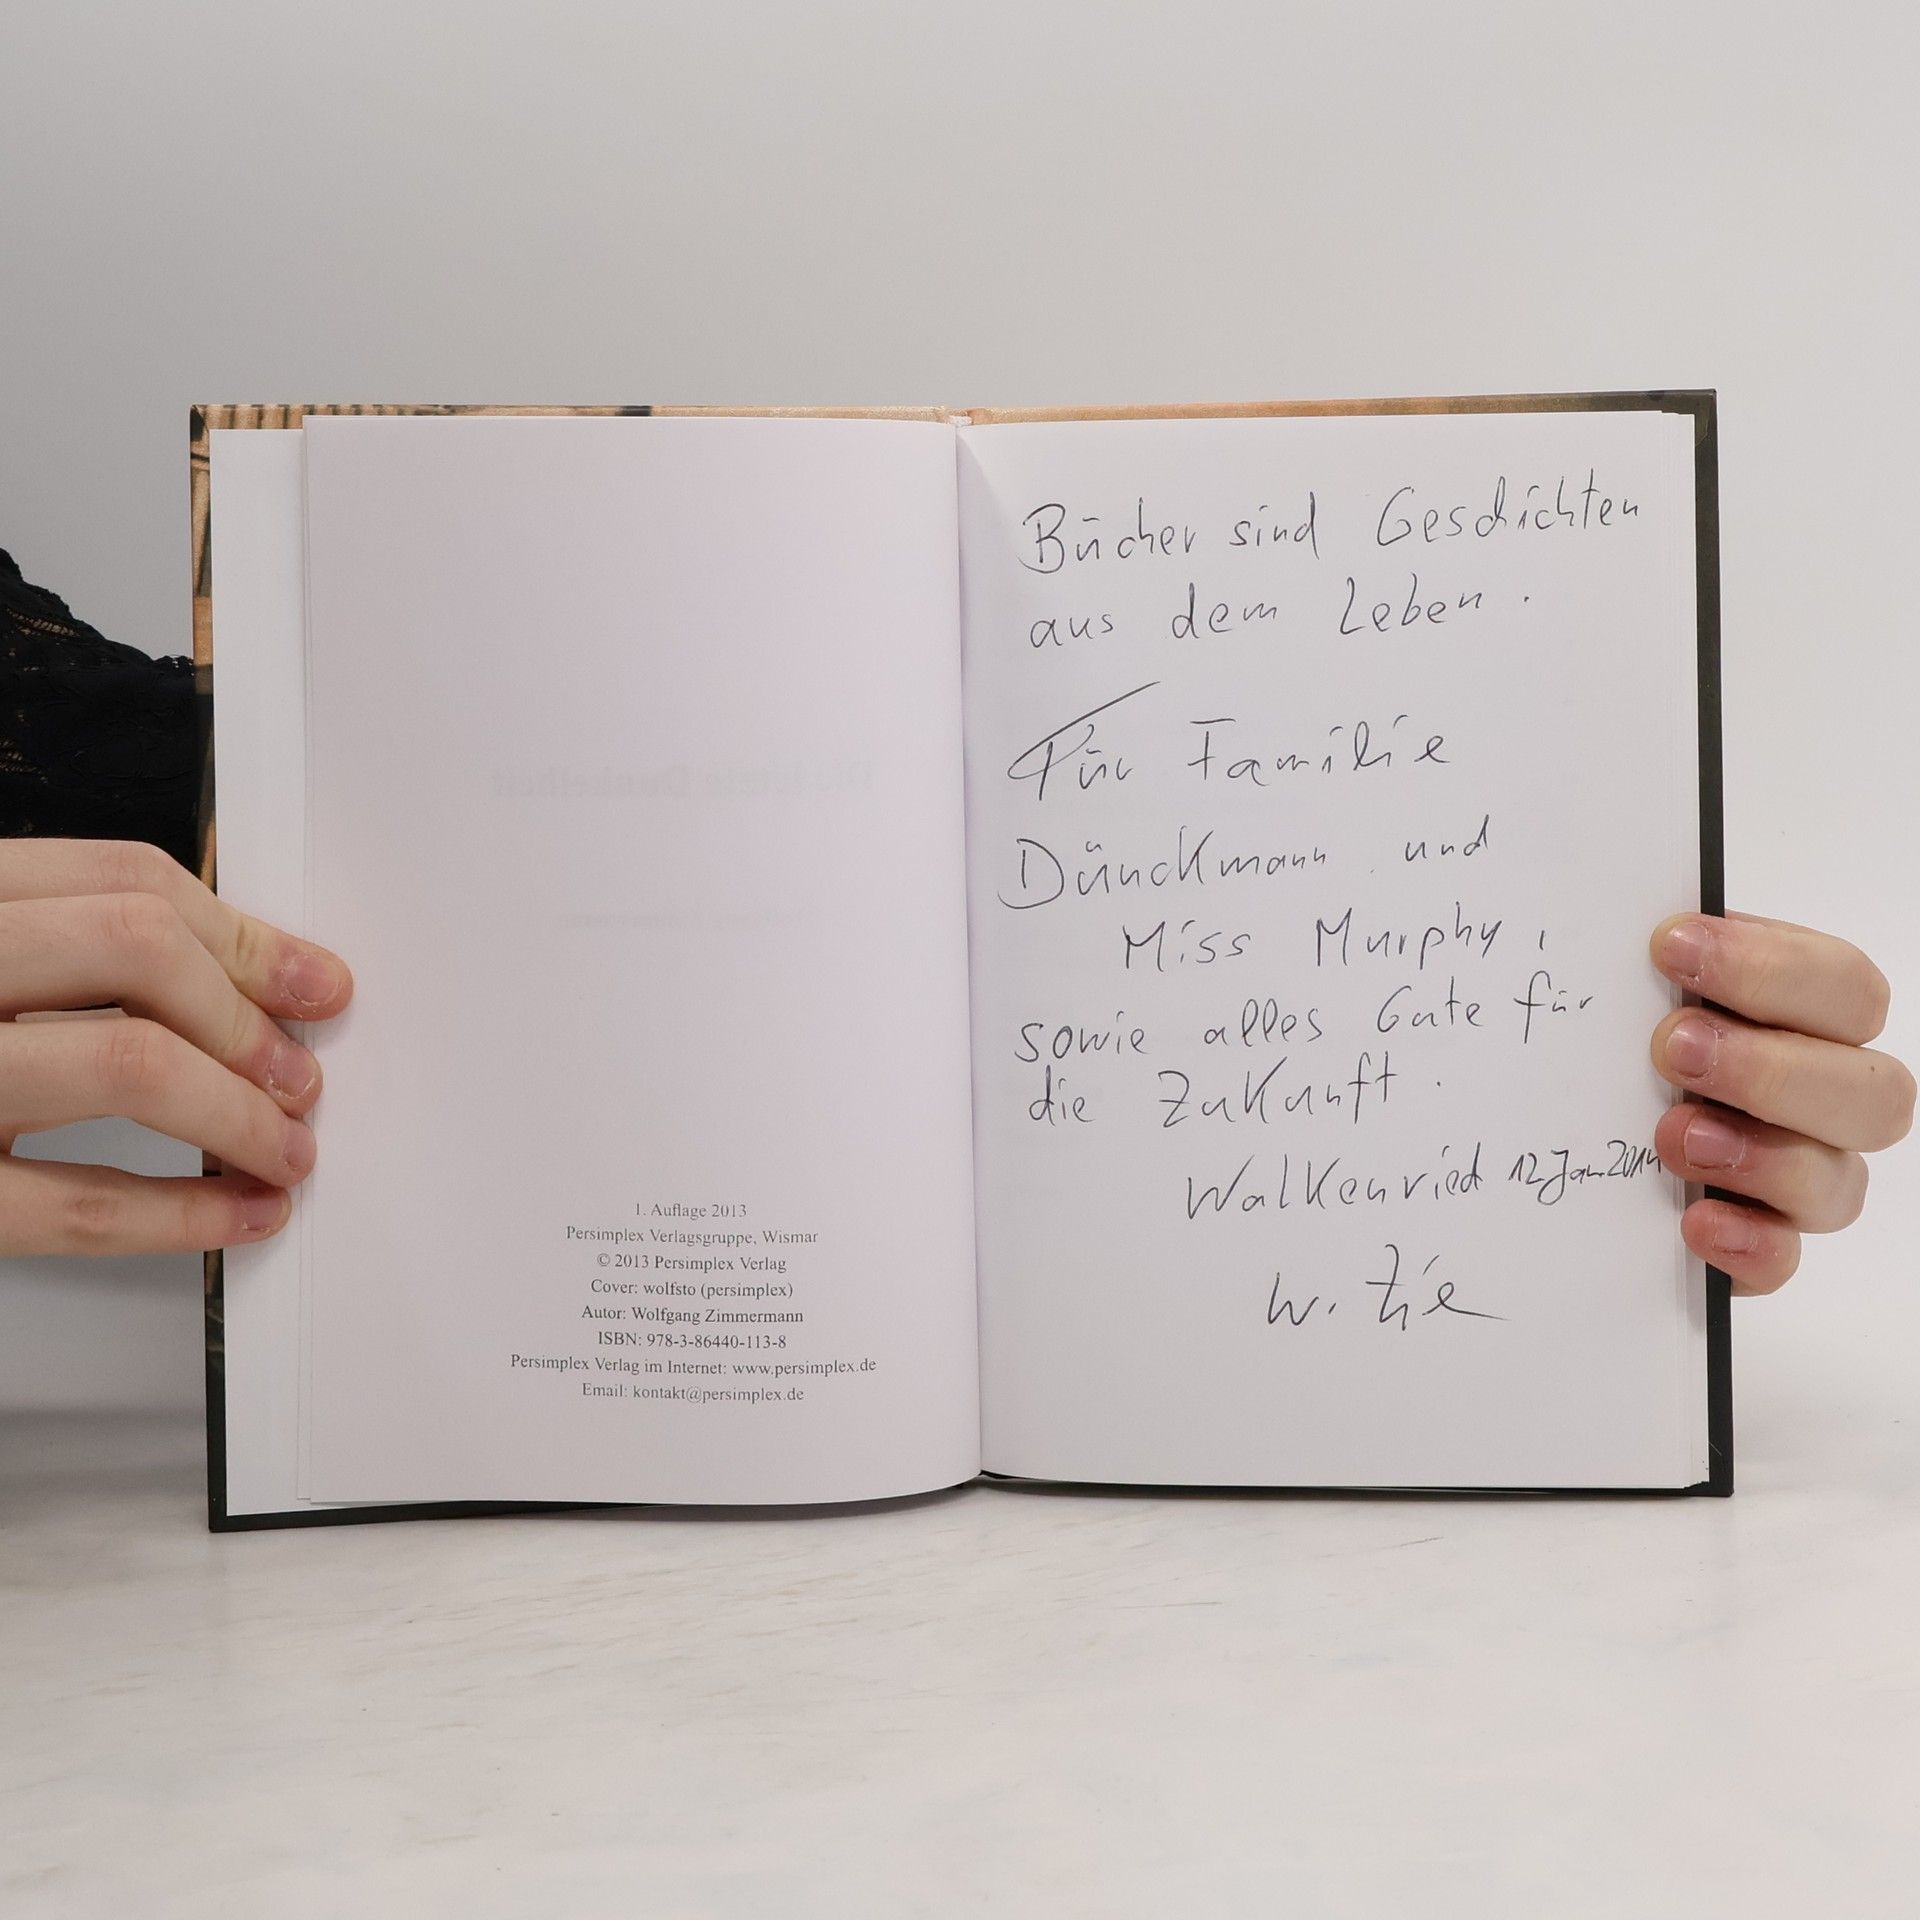 1. Auflage 2013
Persimplex Verlagsgruppe, Wismar
© 2013 Persimplex Verlag
Cover: wolfsto (persimplex)
Autor: Wolfgang Zimmermann
ISBN: 978-3-86440-113-8
Persimplex Verlag im Internet: www.persimplex.de
Email: kontakt@persimplex.de
Bücher sind Geschichten
aus dem Leben.
Für Familie
Dünckmann und
Miss Murphy,
sowie alles Gute für
die Zukunft.
Walkenried 12 Jan 2014
W.